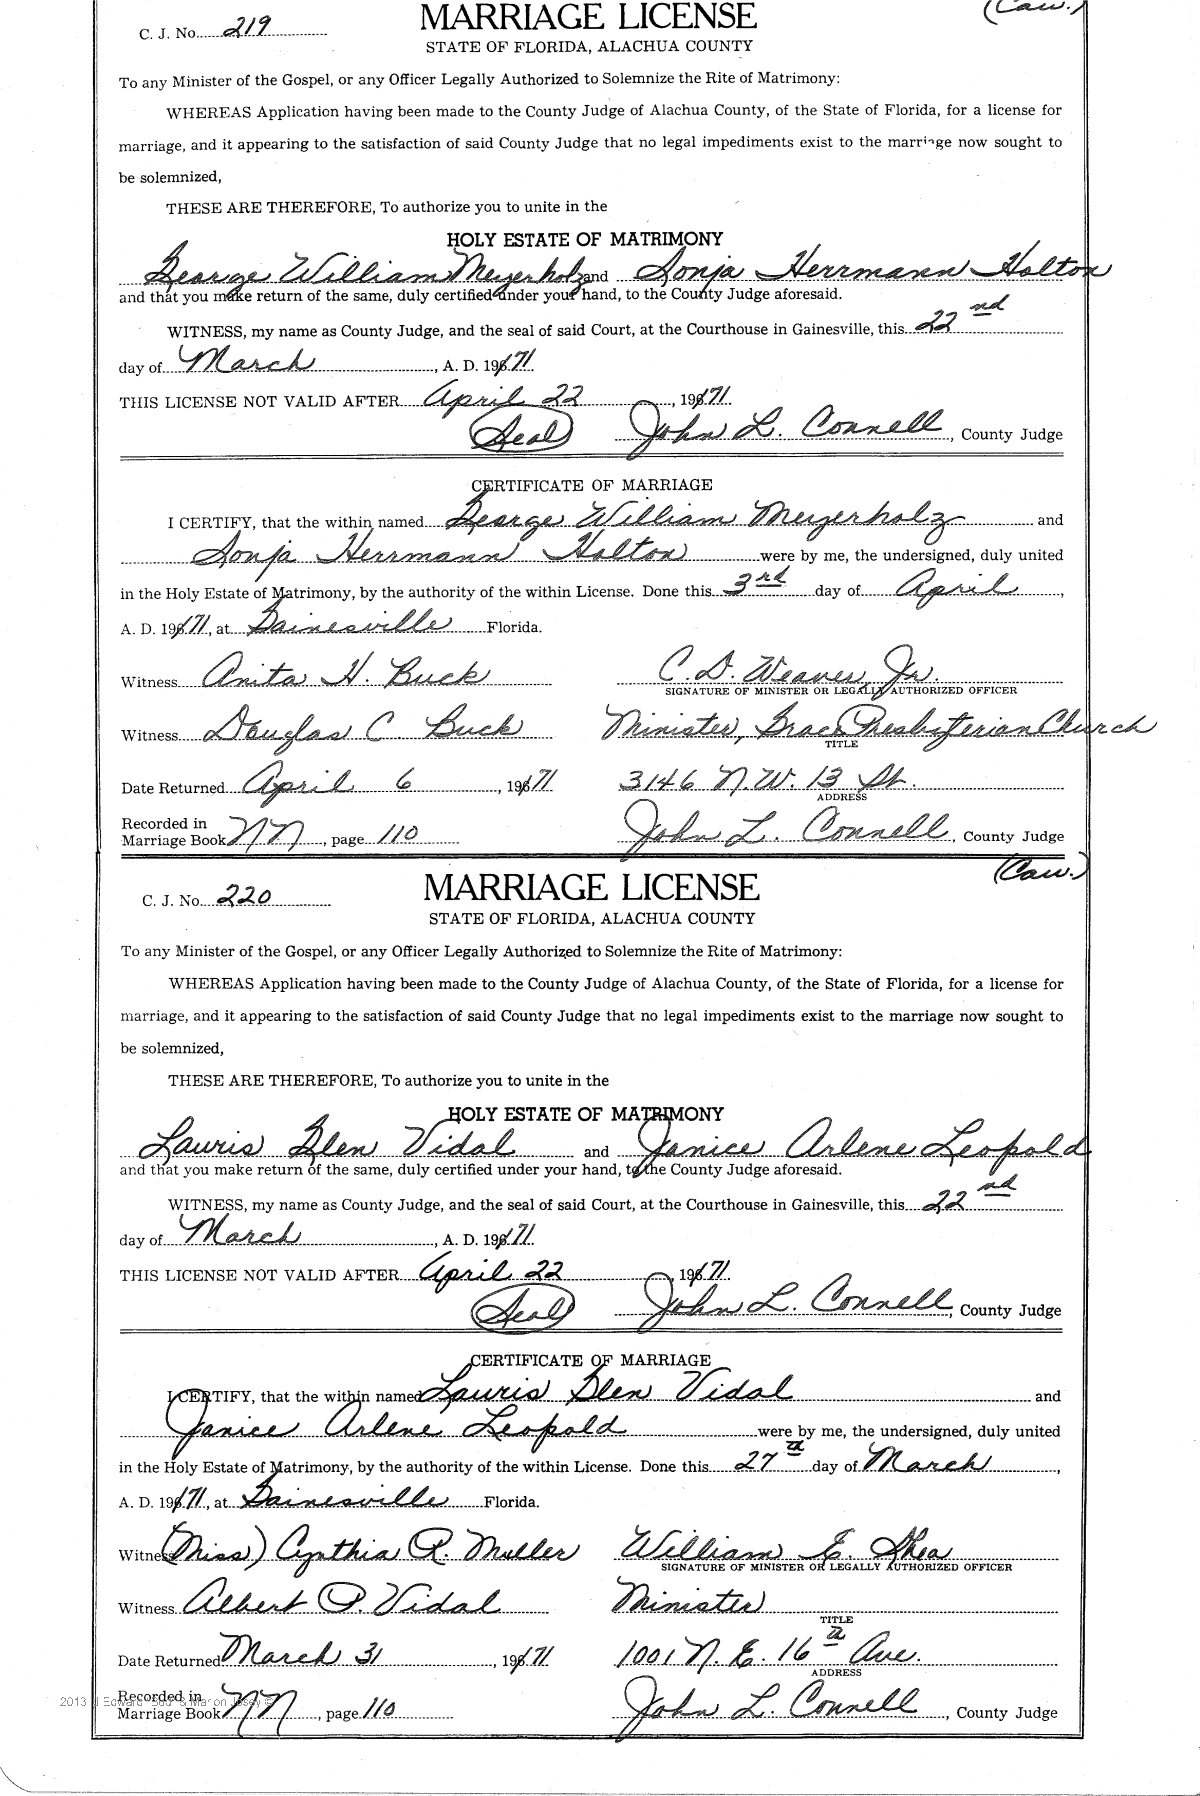 (Caw.)
C. J. No. 219
MARRIAGE LICENSE
STATE OF FLORIDA, ALACHUA COUNTY
To any Minister of the Gospel, or any Officer Legally Authorized to Solemnize the Rite of Matrimony:
WHEREAS Application having been made to the County Judge of Alachua County, of the State of Florida, for a license for
marriage, and it appearing to the satisfaction of said County Judge that no legal impediments exist to the marriage now sought to
be solemnized,
THESE ARE THEREFORE, To authorize you to unite in the
HOLY ESTATE OF MATRIMONY
George William Meyerholz and Sonja Herrmann Holton
and that you make return of the same, duly certified under your hand, to the County Judge aforesaid.
WITNESS, my name as County Judge, and the seal of said Court, at the Courthouse in Gainesville, this 22nd
day of March, A. D. 1971.
THIS LICENSE NOT VALID AFTER April 22, 1971.
(Seal) John L. Connell, County Judge
CERTIFICATE OF MARRIAGE
I CERTIFY, that the within named George William Meyerholz and
Sonja Herrmann Holton were by me, the undersigned, duly united
in the Holy Estate of Matrimony, by the authority of the within License. Done this 3rd day of April,
A. D. 1971, at Gainesville Florida.
Witness Anita H. Buck C. D. Weaver, Jr.
SIGNATURE OF MINISTER OR LEGALLY AUTHORIZED OFFICER
Witness Douglas C. Buck Minister, Grace Presbyterian Church
TITLE
Date Returned April 6, 1971 3146 N.W. 13 St.
ADDRESS
Recorded in
Marriage Book NN, page 110 John L. Connell, County Judge
(Caw.)
C. J. No. 220
MARRIAGE LICENSE
STATE OF FLORIDA, ALACHUA COUNTY
To any Minister of the Gospel, or any Officer Legally Authorized to Solemnize the Rite of Matrimony:
WHEREAS Application having been made to the County Judge of Alachua County, of the State of Florida, for a license for
marriage, and it appearing to the satisfaction of said County Judge that no legal impediments exist to the marriage now sought to
be solemnized,
THESE ARE THEREFORE, To authorize you to unite in the
HOLY ESTATE OF MATRIMONY
Lauris Glen Vidal and Janice Arlene Leopold
and that you make return of the same, duly certified under your hand, to the County Judge aforesaid.
WITNESS, my name as County Judge, and the seal of said Court, at the Courthouse in Gainesville, this 22nd
day of March, A. D. 1971.
THIS LICENSE NOT VALID AFTER April 22, 1971.
(Seal) John L. Connell, County Judge
CERTIFICATE OF MARRIAGE
I CERTIFY, that the within named Lauris Glen Vidal and
Janice Arlene Leopold were by me, the undersigned, duly united
in the Holy Estate of Matrimony, by the authority of the within License. Done this 27th day of March,
A. D. 1971, at Gainesville Florida.
Witness (Miss) Cynthia R. Muller William E. Shea
SIGNATURE OF MINISTER OR LEGALLY AUTHORIZED OFFICER
Witness Albert P. Vidal Minister
TITLE
Date Returned March 31, 1971 1001 N. E. 16th Ave.
ADDRESS
Recorded in
Marriage Book NN, page 110 John L. Connell, County Judge
2013 Edward